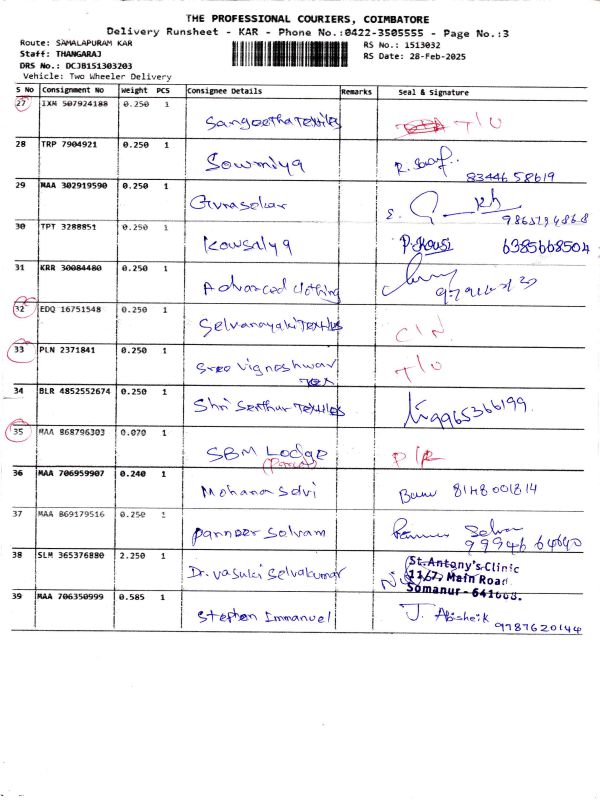 THE PROFESSIONAL COURIERS, COIMBATORE
Delivery Runsheet - KAR - Phone No.:0422-3505555 - Page No.:3
Route: SAMALAPURAM KAR RS No.: 1513032
Staff: THANGARAJ RS Date: 28-Feb-2025
DRS No.: DCJB151303203
Vehicle: Two Wheeler Delivery
S No Consignment No Weight PCS Consignee Details Remarks Seal & Signature
27 IXM 507924188 0.250 1 Sangeetha Textiles T/U
28 TRP 7904921 0.250 1 Sowmiya R. 83446 58619
29 MAA 302919590 0.250 1 Gunasekar
30 TPT 3288851 0.250 1 Kowsalya P. Kousi 6385668504
31 KRR 30084480 0.250 1 Advanced clothing
32 EDQ 16751548 0.250 1 Selvanayaki Textiles C/N
33 PLN 2371841 0.250 1 Sree Vigneshwar Tex T/U
34 BLR 4852552674 0.250 1 Shri Senthur Textiles 9965366199
35 MAA 868796303 0.070 1 SBM Lodge
36 MAA 706959907 0.240 1 Mohana Selvi 8148001814
37 MAA 869179516 0.250 1 Panneer Selvam 99946 64640
38 SLM 365376880 2.250 1 Dr. Vasuki Selvakumar St.Antony's Clinic
11/7, Main Road
Somanur - 641668.
39 MAA 706350999 0.585 1 Stephen Immanuel J. Abisheik 9787620144